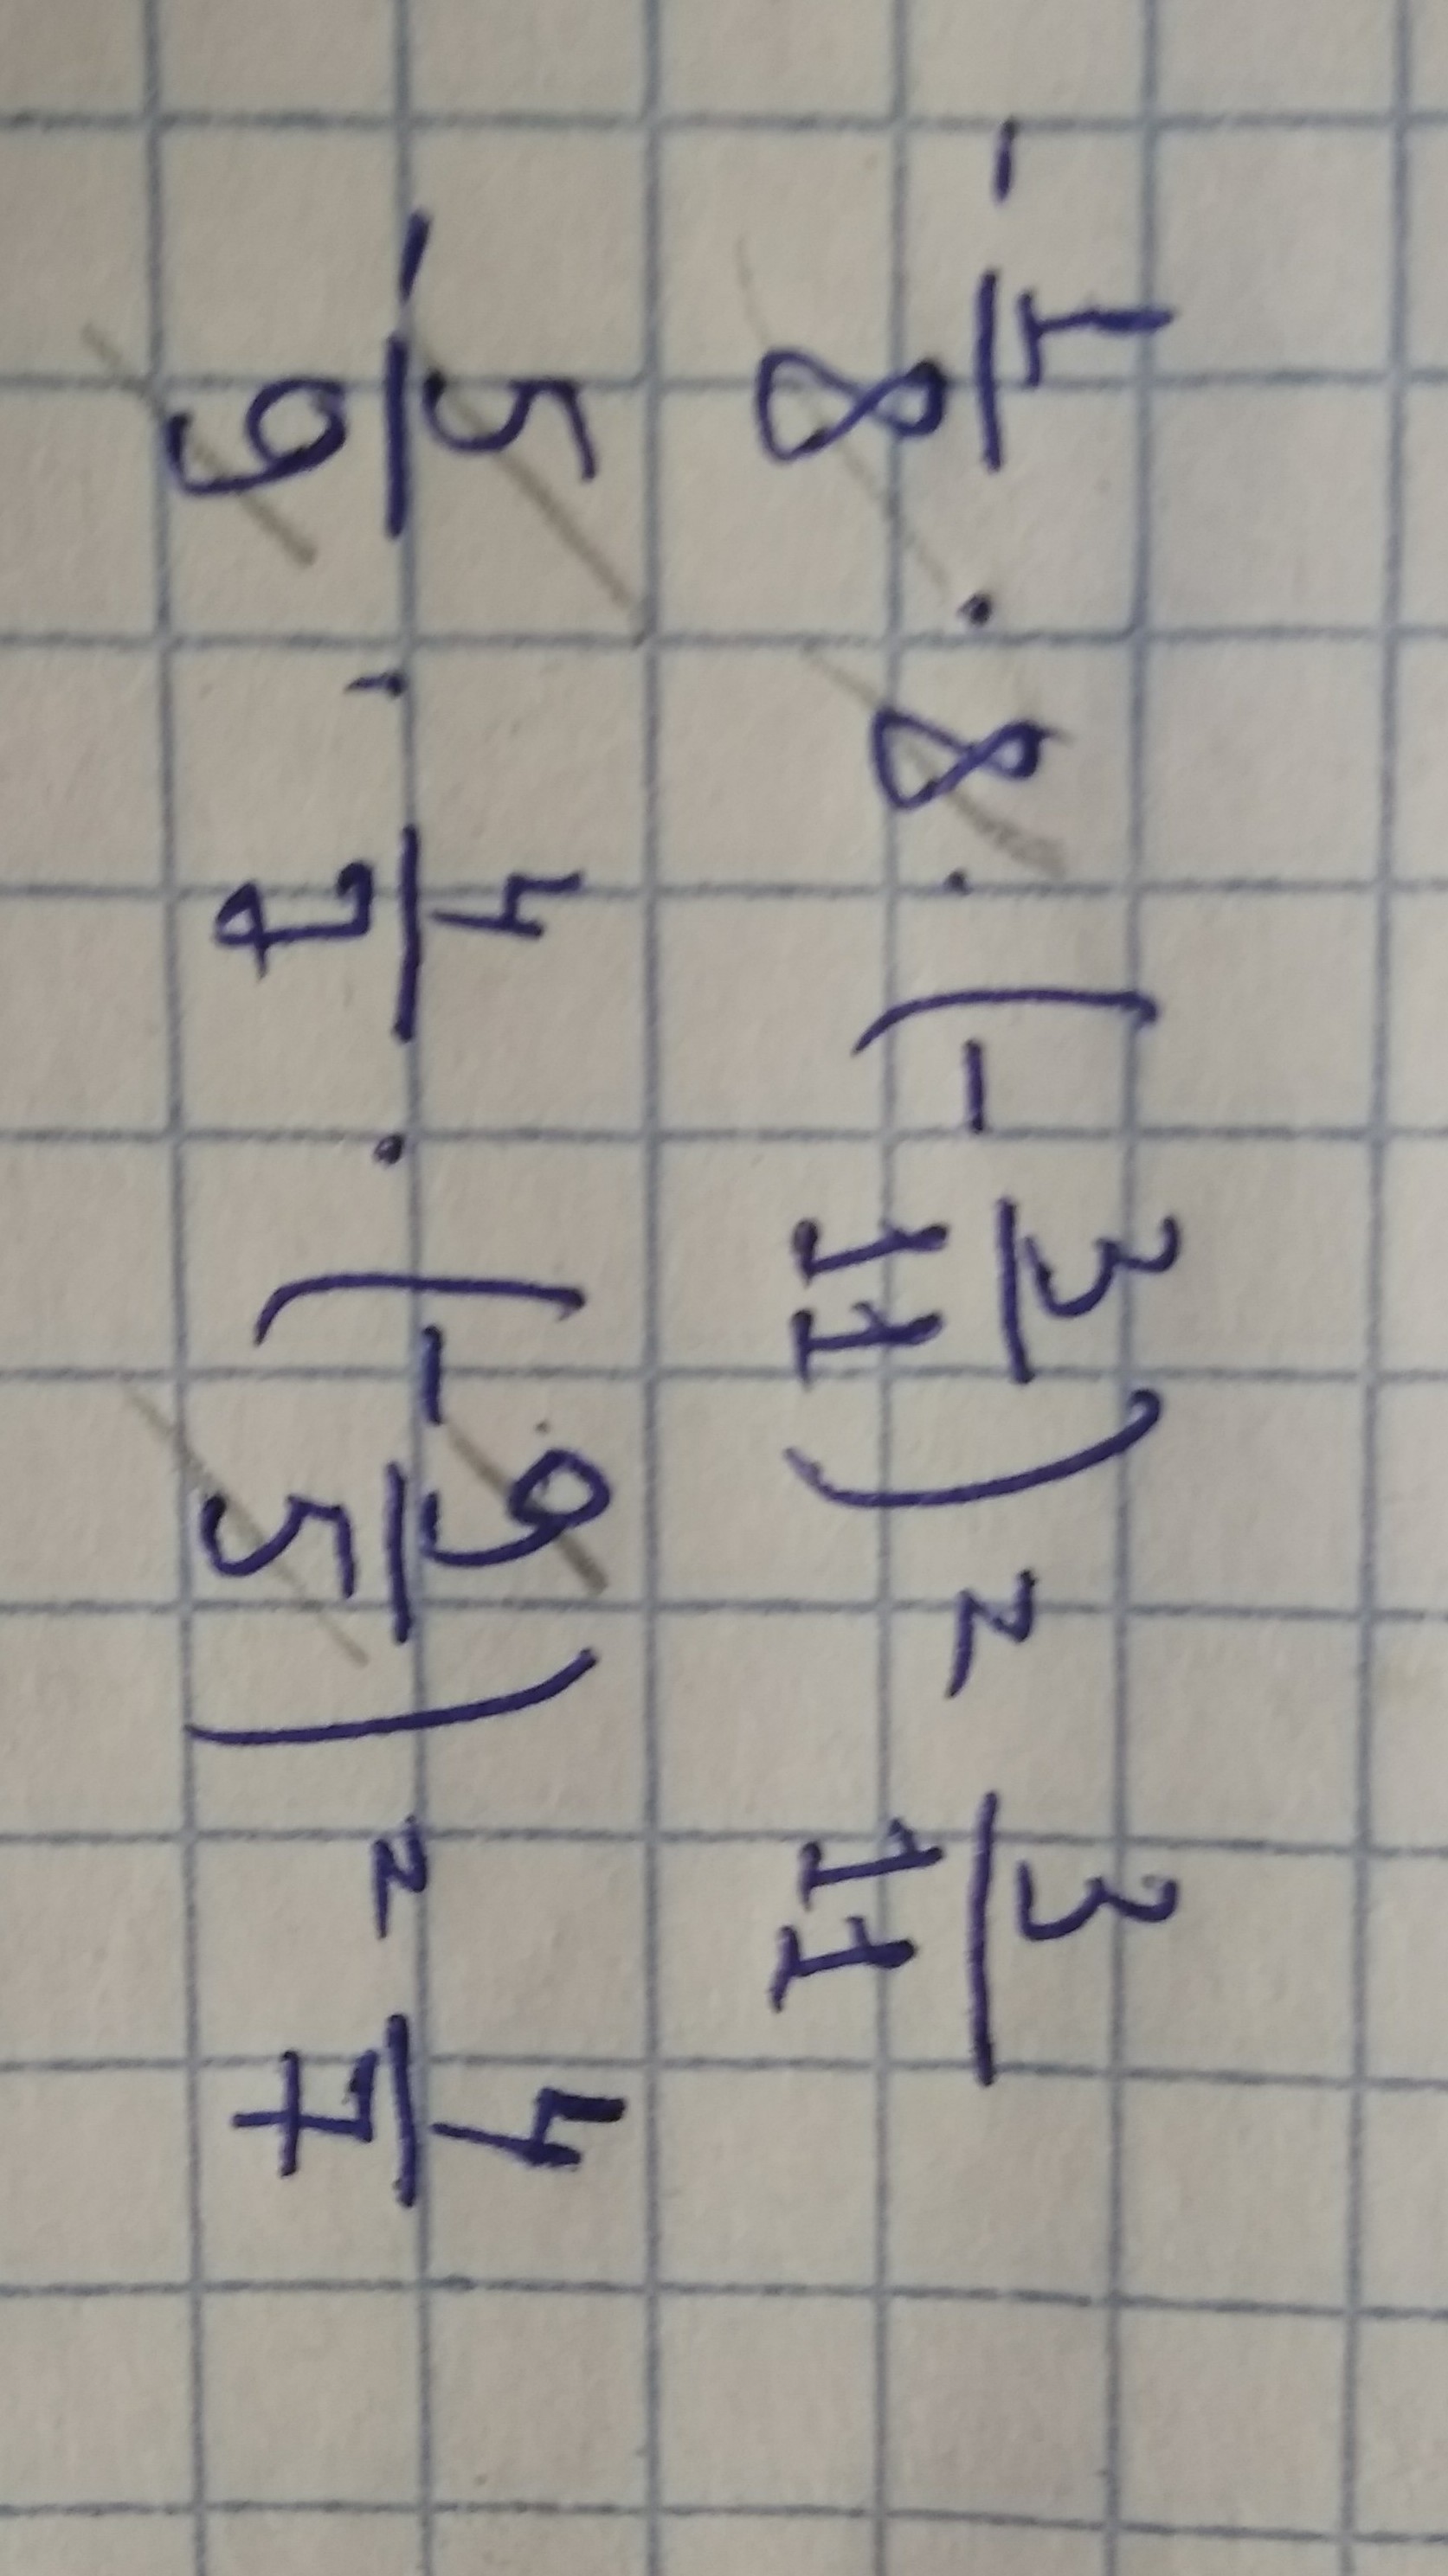 - 1/8 · 8 · (- 3/11) = 3/11
- 5/9 · 4/7 · (- 9/5) = 4/7